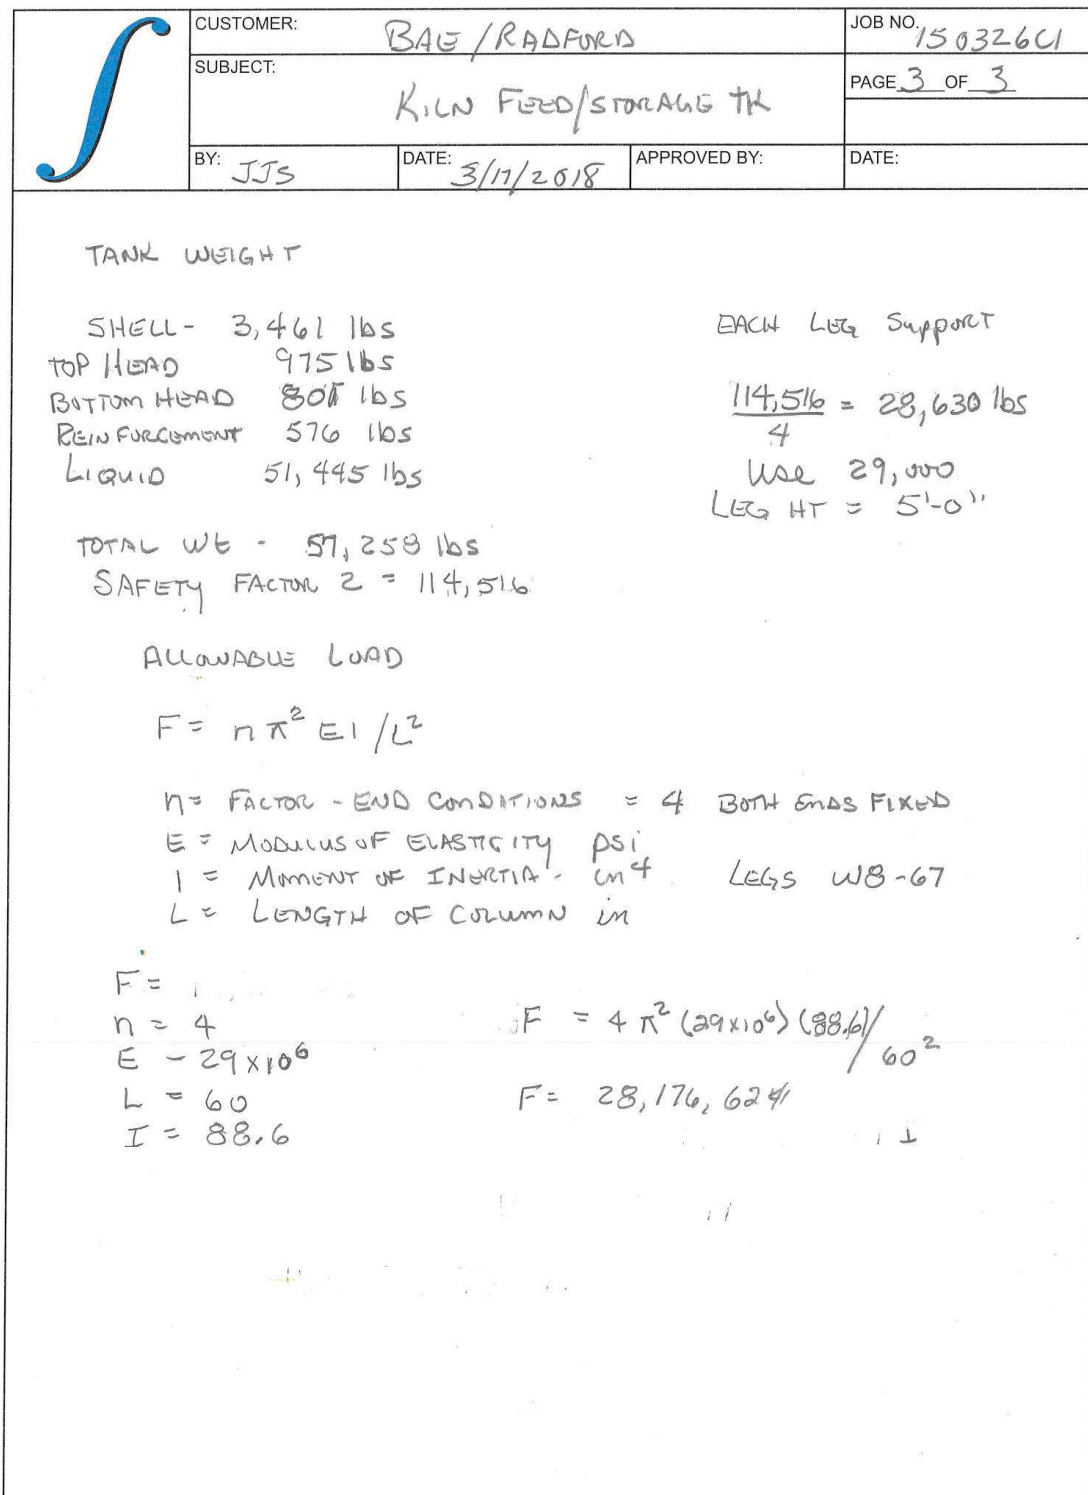 CUSTOMER: BAE/RADFORD
JOB NO. 150326C1
SUBJECT: KILN FEED/STORAGE TK
PAGE 3 OF 3
BY: JJS
DATE: 3/17/2018
APPROVED BY:
DATE:
TANK WEIGHT
SHELL- 3,461 lbs
TOP HEAD 975 lbs
BOTTOM HEAD 801 lbs
REINFORCEMENT 576 lbs
LIQUID 51,445 lbs
TOTAL Wt - 57,258 lbs
SAFETY FACTOR 2 = 114,516
EACH LEG SUPPORT
114,516/4 = 28,630 lbs
Use 29,000
LEG HT = 5'-0"
ALLOWABLE LOAD
F = n π² EI/L²
n = FACTOR - END CONDITIONS = 4 BOTH ENDS FIXED
E = MODULUS OF ELASTICITY psi
I = MOMENT OF INERTIA - in⁴ LEGS W8-67
L = LENGTH OF COLUMN in
F =
n = 4
E - 29x10⁶
L = 60
I = 88.6
F = 4 π² (29x10⁶)(88.6)/60²
F = 28,176,624#